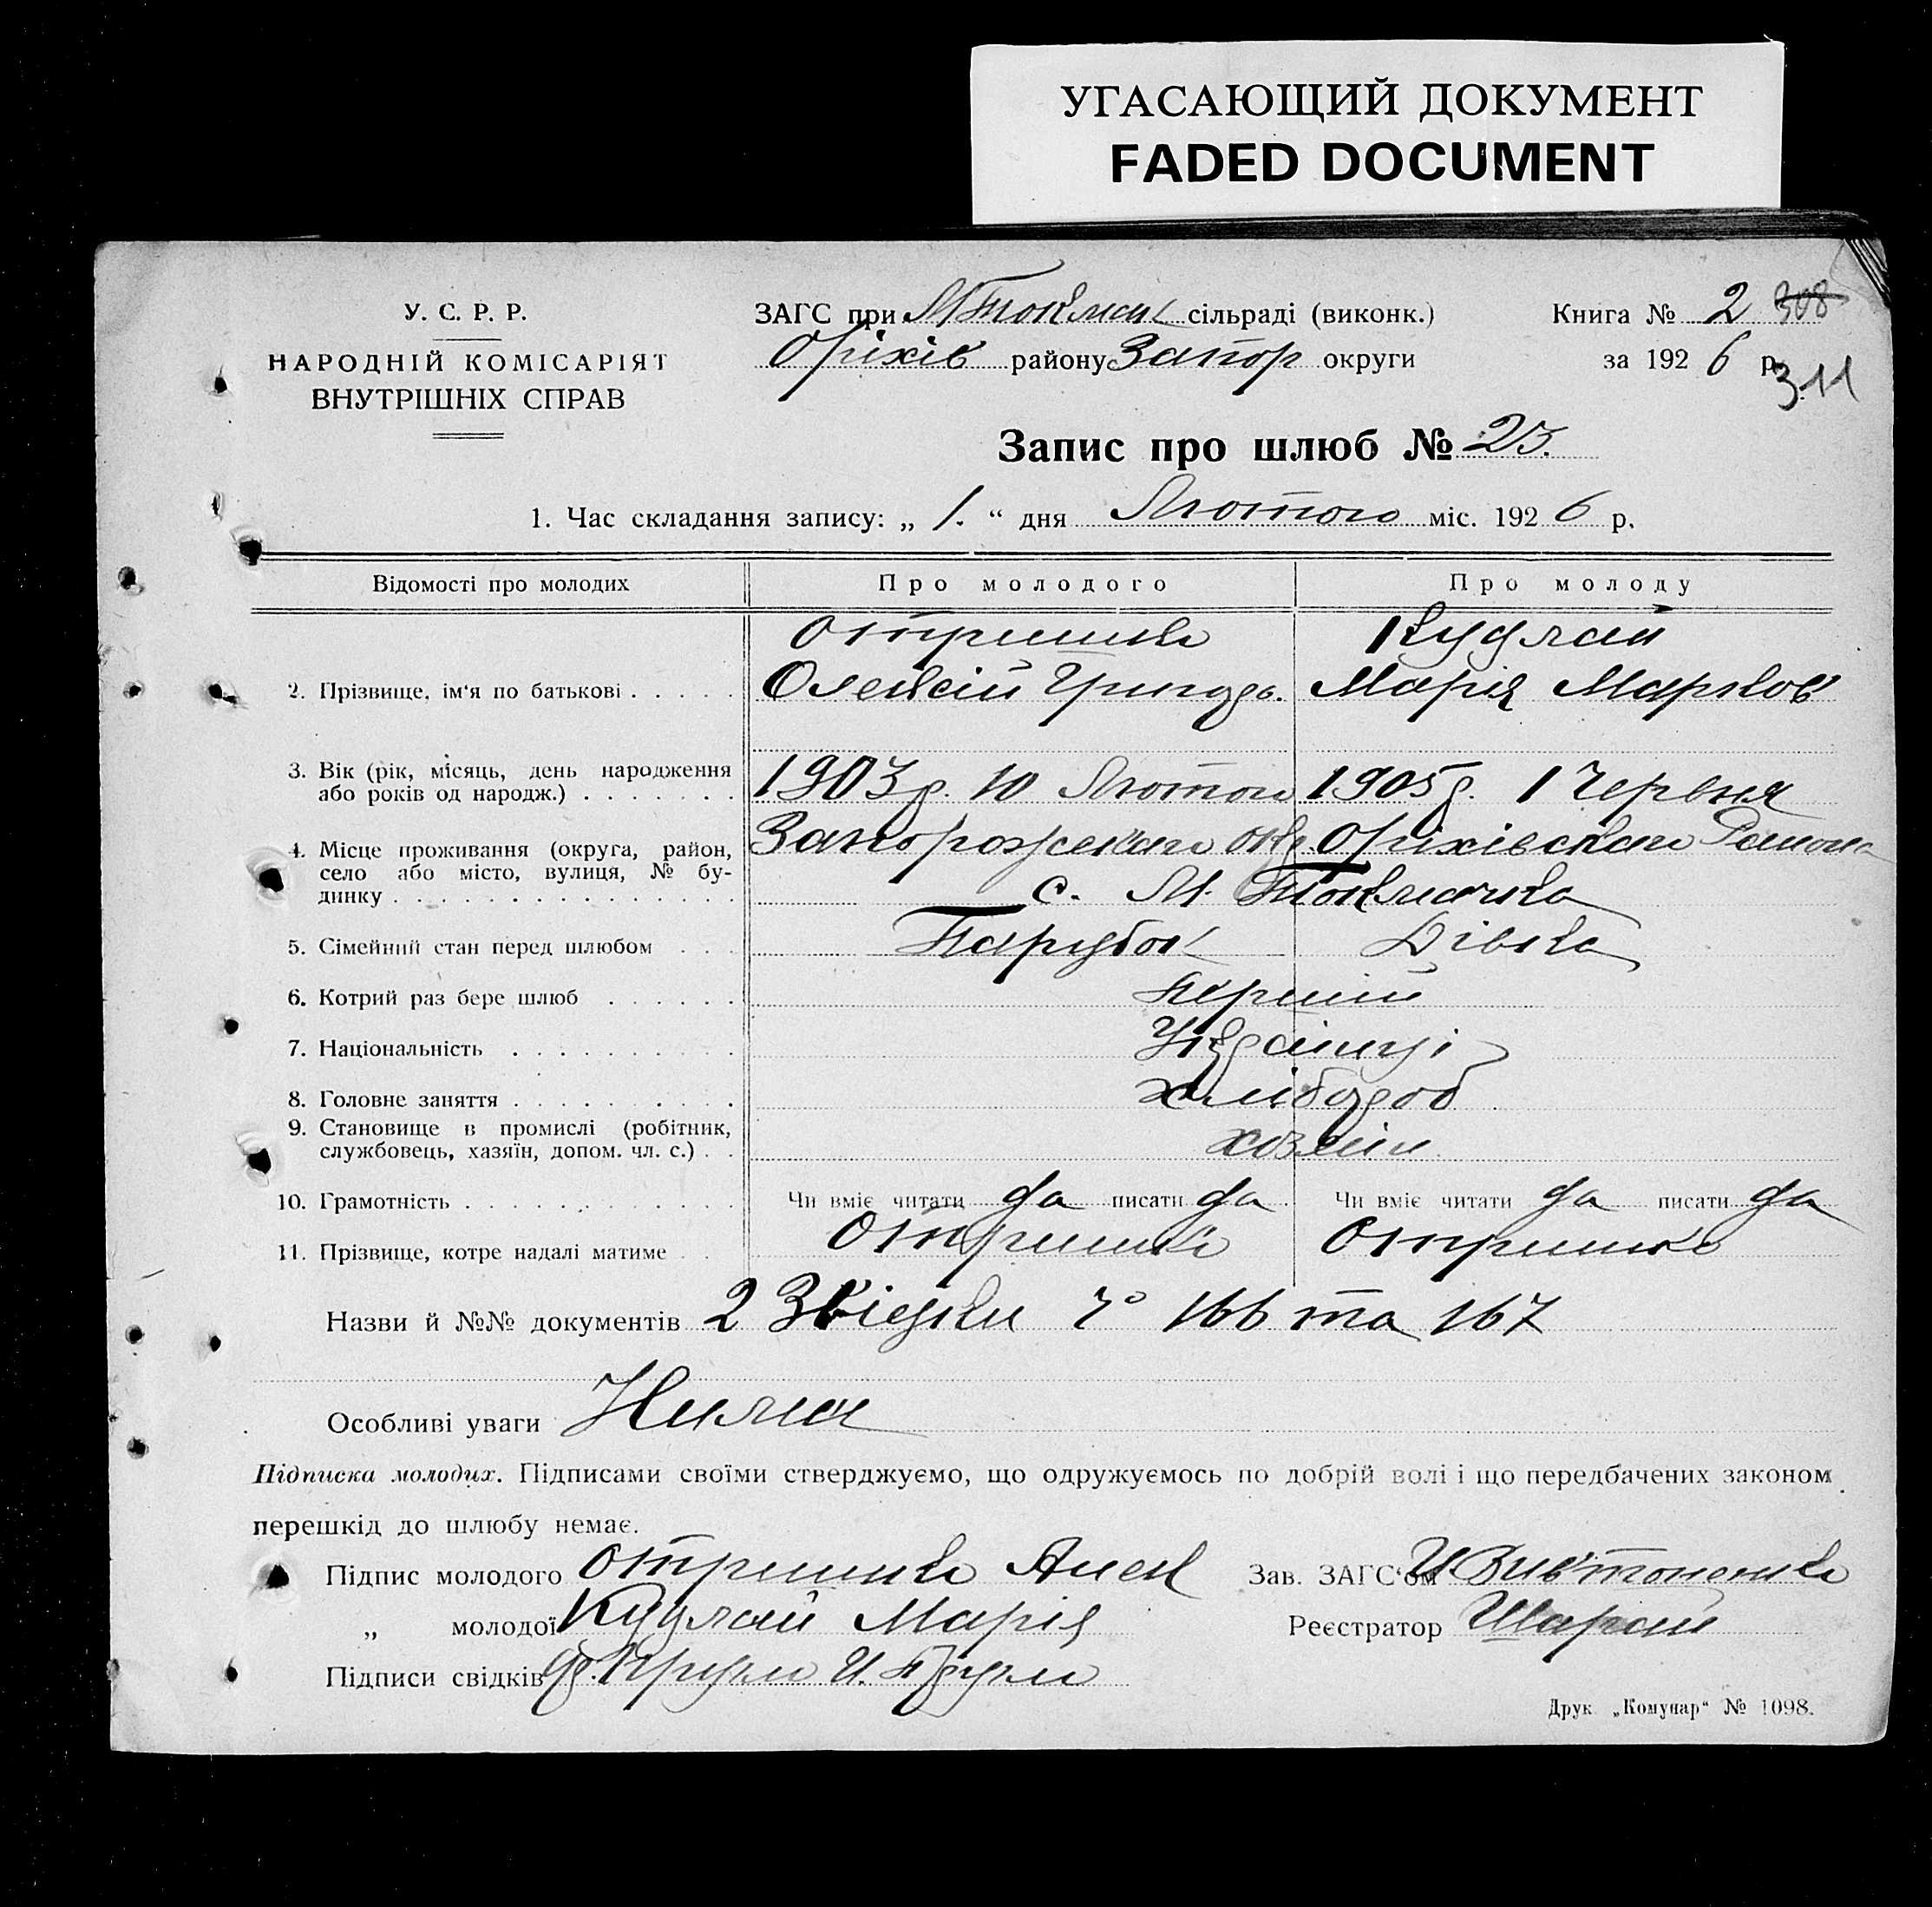 УГАСАЮЩИЙ ДОКУМЕНТ
FADED DOCUMENT
У. С. Р. Р.
НАРОДНІЙ КОМІСАРІЯТ
ВНУТРІШНІХ СПРАВ
ЗАГС при М Токмак сільраді (виконк.)
Оріхів району Запор округи
Книга № 2 308
за 192 6 р.
311
Запис про шлюб № 23.
1. Час складання запису: „ 1. “ дня Лютого міс. 192 6 р.
Відомості про молодих Про молодого Про молоду
Отришко Кудлай
2. Прізвище, ім‘я по батькові . . . . . Олексій Григорь. Марія Марков
3. Вік (рік, місяць, день народження
або років од народж.) . . . . . . . 1903 р. 10 Лютого 1905 р. 1 Червня
4. Місце проживання (округа, район, Запорожскаго окр. Оріхівскаго Раиона
село або місто, вулиця, № бу- с. М. Токмачка
динку . . . . . . . . . . . . . . .
5. Сімейний стан перед шлюбом . . . Парубок Дівка
6. Котрий раз бере шлюб . . . . . . перший
7. Національність . . . . . . . . . . Українці
8. Головне заняття . . . . . . . . . . хлібороб
9. Становище в промислі (робітник,
службовець, хазяїн, допом. чл. с.) . . хозяїн
10. Грамотність . . . . . . . . . . . . Чи вміє читати да писати да Чи вміє читати да писати да
11. Прізвище, котре надалі матиме . . Отришко Отришко
Назви й №№ документів 2 Звідки 166 та 167
Особливі уваги Нима
Підписка молодих. Підписами своїми стверджуємо, що одружуємось по добрій волі і що передбачених законом
перешкід до шлюбу немає.
Підпис молодого Отришко Алек Зав. ЗАГС‘ом
„ молодої Кудлай Марія Реєстратор Шарай
Підписи свідків
Друк. „Комунар“ № 1098.